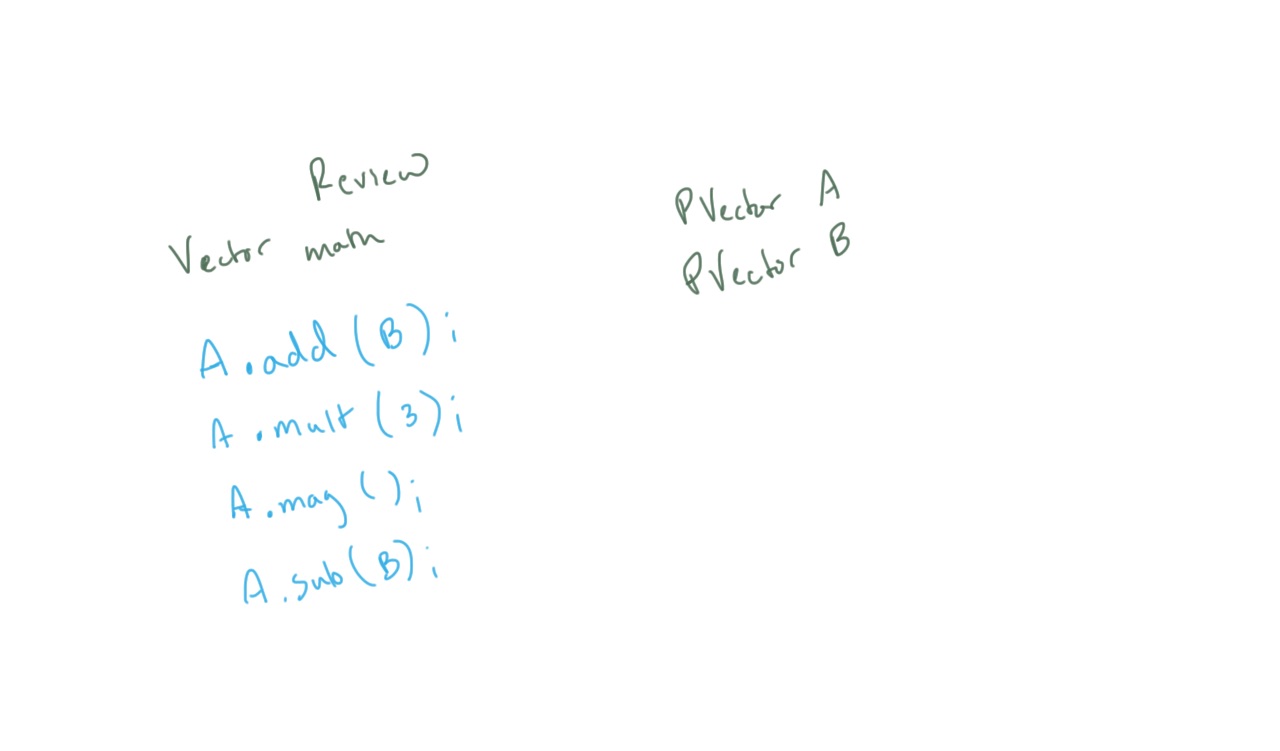 Review
Vector math
A.add(B);
A.mult(3);
A.mag();
A.sub(B);
PVector A
PVector B